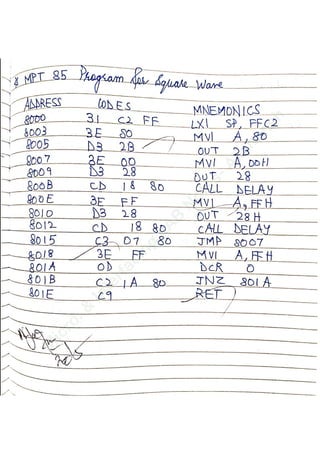 MPT 85 Program for Square Wave
ADDRESS CODES MNEMONICS
8000 31 C2 FF LXI SP, FFC2
8003 3E 80 MVI A, 80
8005 D3 2B OUT 2B
8007 3E 00 MVI A, 00H
8009 D3 28 OUT 28
800B CD 18 80 CALL DELAY
800E 3E FF MVI A, FFH
8010 D3 28 OUT 28H
8012 CD 18 80 CALL DELAY
8015 C3 07 80 JMP 8007
8018 3E FF MVI A, FFH
801A 0D DCR 0
801B C2 1A 80 JNZ 801A
801E C9 RET